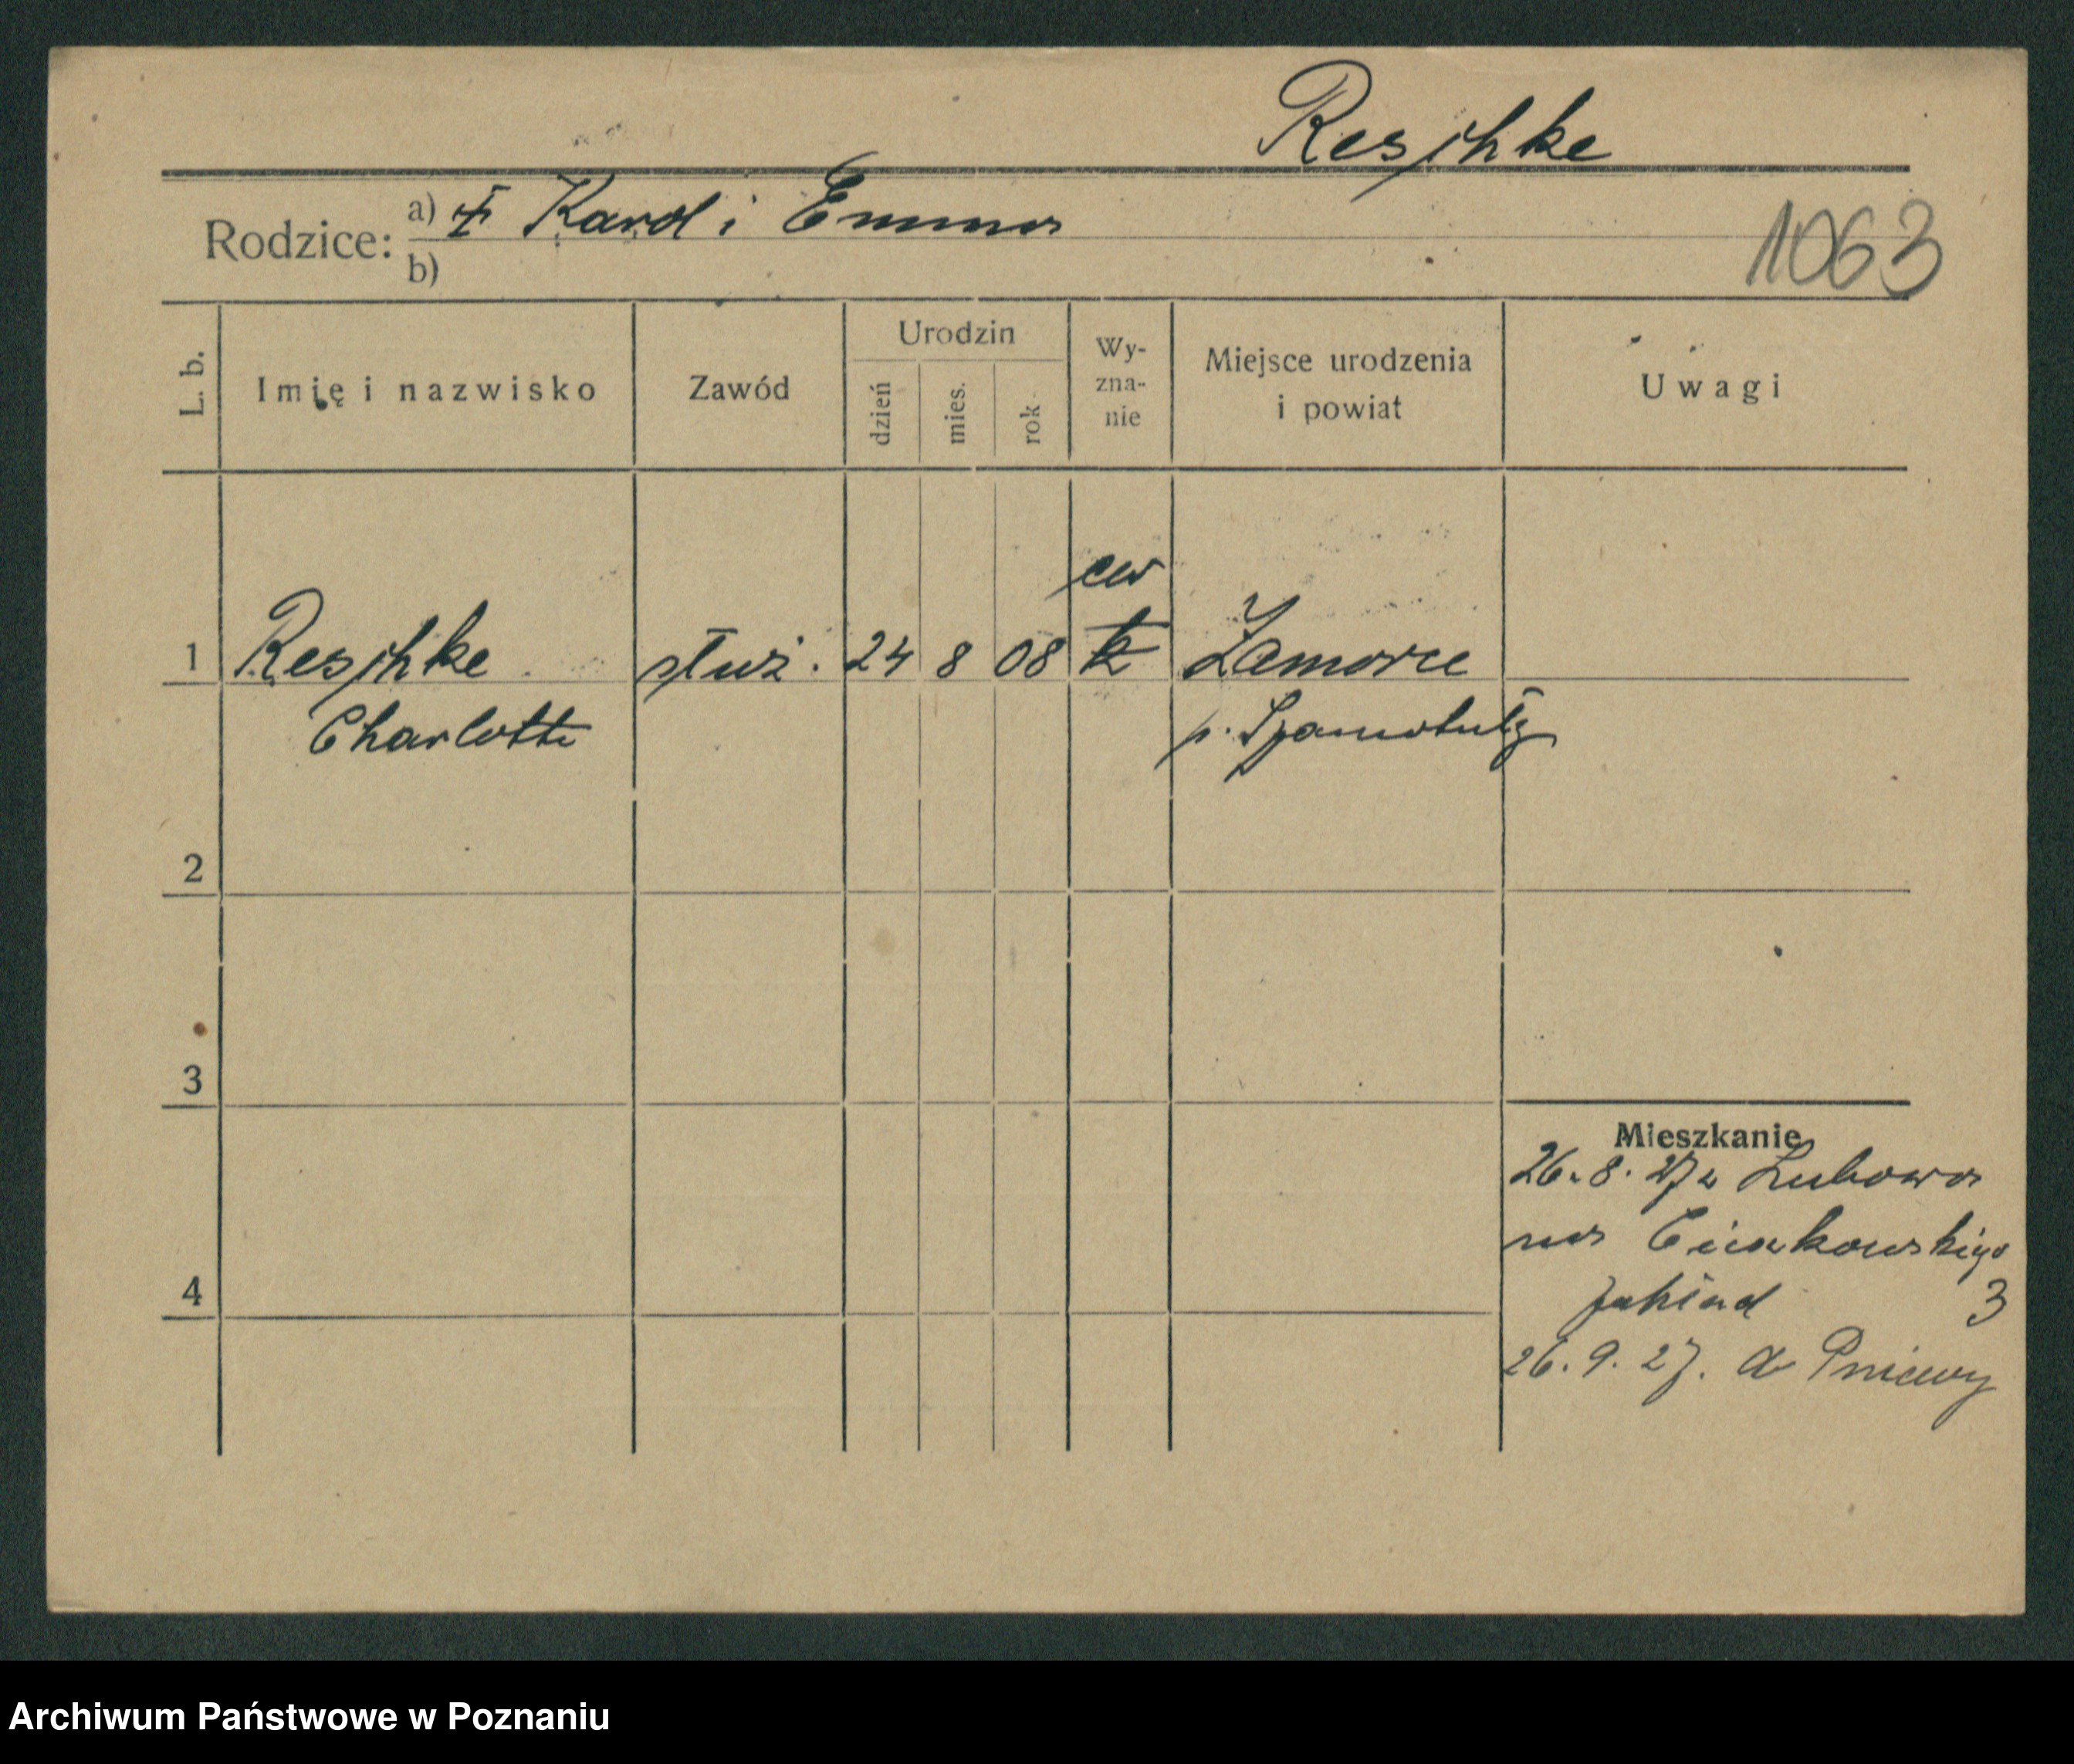 Reschke
Rodzice: a) Karol i Emma
b)
1063
L. b. Imię i nazwisko Zawód Urodzin dzień mies. rok Wy-zna-nie Miejsce urodzenia i powiat Uwagi
ew
1 Reschke służ. 24 8 08 k
Charlotte p. Szamotuły
2
3
Mieszkanie
26.8.27 z Lubowa
4
26.9.27. do Pniewy
Archiwum Państwowe w Poznaniu